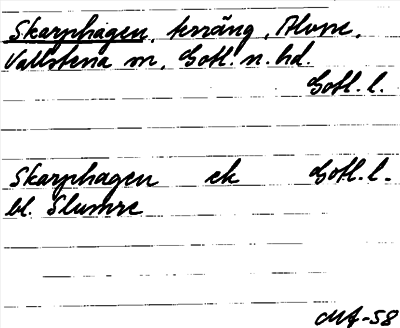 Skarphagen, terräng, Alvne,
Vallstena sn, Gotl. n. hd.
Gotl. l.
Skarphagen ek Gotl. l.
bl. Slumre
-58